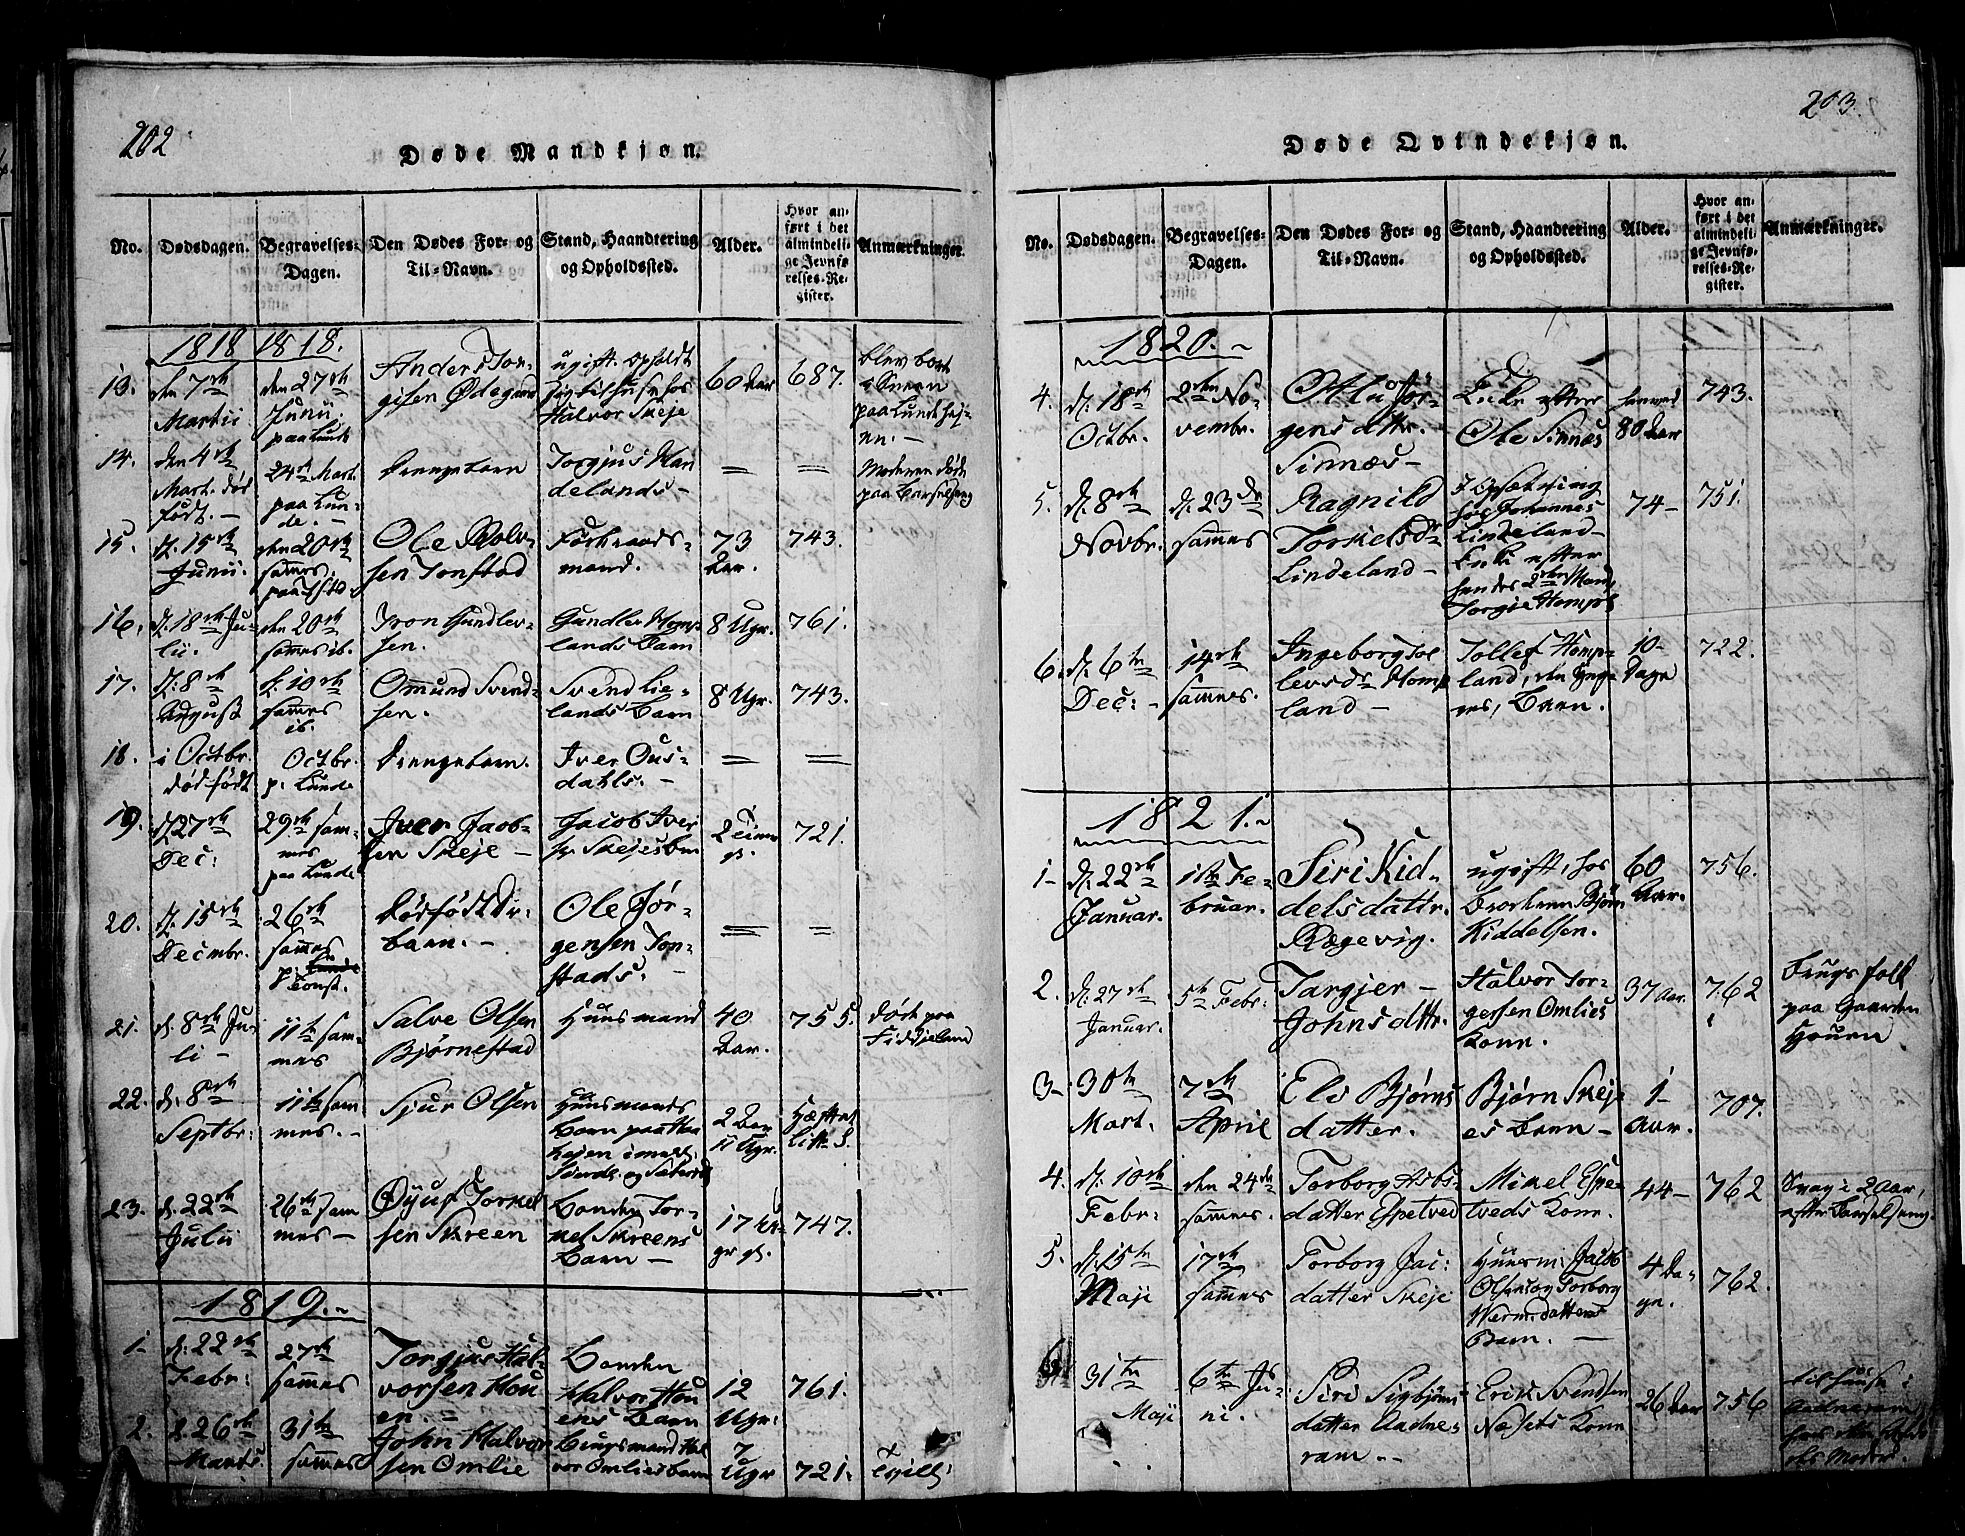 202
Døde Mandkjøn.
No.
Dødsdagen.
Begravelses-
Dagen.
Den Dødes For- og
Til-Navn.
Stand, Haandtering
og Opholdssted.
Alder.
Hvor an-
ført i det
almindeli-
ge Jevnfø-
relses-Re-
gister.
Anmærkninger.
1818 1818.
13.
den 7de
Martii
den 27de
Junii.
paa Lunde
Anders Tor-
gisen Ødegaard
ugift. opholdt
sig tilhuse hos
Halvor Skeje
60 Aar
687.
blev bort
paa Lunde
14.
den 4de
Mart. død
født. –
24de Mart.
paa Lun-
de. –
Drengebarn
Torgjus Hau-
delands –
=
=
Moderen døde
paa Barselseng
15.
d. 15de
Junii.
den 20de
sammes.
Ole Rolv-
sen Tonstad
Forhands-
mand.
73
Aar.
743.
16.
d. 18de Ju-
lii.
den 20de
sammes ib.
Tron Gundlev-
sen.
Gundlev Homp-
lands Barn
8 Ugr.
761.
17.
d. 8de
August
d. 10de
sammes
ib.
Ommund Svend-
sen.
Svend Lie-
lands Barn
8 Ugr.
743.
18.
i Octbr.
dødfødt
Octbr.
p. Lunde
Drengebarn.
Iver Ous-
dahls. –
=
=
19.
d. 27de
Dec:
29de sam-
mes
paa Lunde
Iver Jacob-
sen Skeje –
Jacob Iver
sen Skejes Barn
2 Timer
gl.
721.
20.
d. 15de
Decmbr.
26de
sammes
p. Tonst.
Dødfødt Dr.
barn. –
Ole Jør-
gensen Ton-
stads. –
=
=
21.
d. 8de Ju-
li –
11te sam-
mes
Salve Olsen
Bjørnestad
Huusmand
40
Aar.
755.
døde paa
Fidkjeland
22.
d. 8de
Septbr:
11te sam-
mes. –
Sjur Olsen
Huusmands
Barn paa
2 Aar
11 Ugr.
Hæftet
Litt. S.
23.
d. 22de
Julii
26de sam
mes –
Øjuf Torkel
sen Skreen
Bonden Tor-
kel Skreens
Barn –
17 U-
gr gl.
747.
1819.
1-
d. 22de
Febr:
27de
sammes
Torgjus Hal-
vorsen Hou
en. –
Bonden
Halvor Hou
ens Barn
12
Ugr.
761.
2.
d. 26de
Marts.
31te
sammes
John Halvor
sen Omlie
Brugsmand Hal
vor Omlies Barn
7
Ugr
721.
203.
Døde Qvindekjøn.
No.
Dødsdagen.
Begravelses-
Dagen.
Den Dødes For- og
Til-Navn.
Stand, Haandtering
og Opholdssted.
Alder.
Hvor an-
ført i det
almindeli-
ge Jevnfø-
relses-Re-
gister.
Anmærkninger.
1820.
4.
d. 18de
Octbr.
2den No-
vembr.
Olu Jør-
gensdattr.
Sinnæs –
Enke efter
Ole Sinnæs
henved
80 Aar
743.
5.
d. 8de
Novbr.
d. 23de
sammes
Ragnild
Torkelsdr
Lindeland –
I Opsætning
hos Johannes
Lindeland –
Enke efter
hendes 2den Mand
Torgie Hompl
74 –
751.
6.
d. 6te
Dec: –
14de
sammes.
Ingeborg Tol
levsdr Homp
land –
Tollef Homp-
land, den Yng-
res, Barn.
10-
Dage
722.
1821.
1-
d. 22de
Januar.
11te Fe-
bruar.
Siri Kid-
delsdattr.
Rægevig.
ugift, hos
Broderen Bjørn
Kiddelsen.
60
Aar.
756.
2.
d. 27de
Januar.
5te Febr:
Targjer –
Johnsdttr.
Halvor Tor-
gersen Omlies
Kone.
37 Aar.
762
Brugsfolk
paa Gaarden
Houen
3-
30te
Mart.
7de
April
Els Bjørns
datter.
Bjørn Skej-
es Barn –
1-
Aar.
707.
4.
d. 10de
Febr:
den 24de
sammes.
Torborg Asbs-
datter Espetved
Mikel Espe-
tveds Kone.
44 –
762
Svag i 2 Aar,
efter Barselseng.
5.
d. 15de
Maji
17de
sammes
Torborg Jac:
datter Skeje
Huusm: Jacob
Olsens og Torborg
Barn. –
4 Da-
ge.
762.
6.
31te
Maji
6te Ju-
ni.
Siri Sigbjørns
datter Aadnes-
ram. –
Erik Svendsen
Næsets Kone
26 Aar
756
tilhuuse i
Aadnesram